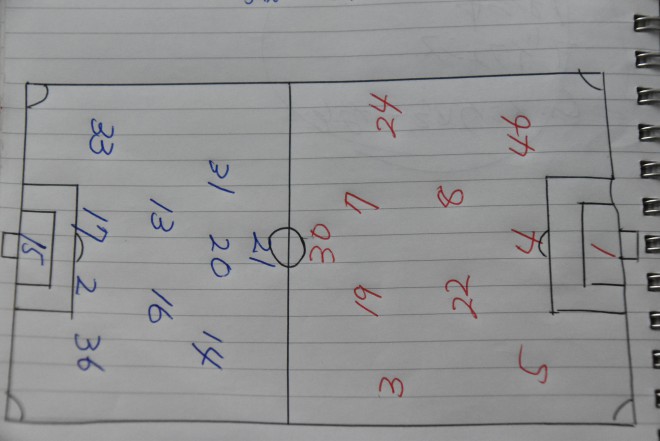 15
33
17
2
36
13
16
31
20
14
21
30
7
19
24
3
8
22
46
4
5
1